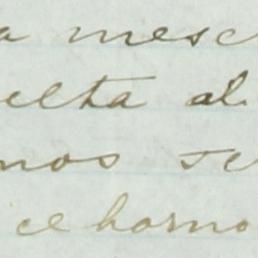 a mesc
elta al
mos se
ce horno